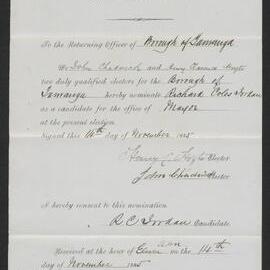 To the Returning Officer of Borough of Tauranga
We John Chadwick and Henry Clarence Hoyte
two duly qualified electors for the Borough of
Tauranga hereby nominate Richard Coles Jordan
as a candidate for the office of Mayor
at the present election.
Signed this 14th day of November 1885
Henry C. Hoyte Elector
John Chadwick Elector
I hereby consent to this nomination
R C Jordan Candidate.
Received at the hour of Eleven am on the 14th
day of November 1885